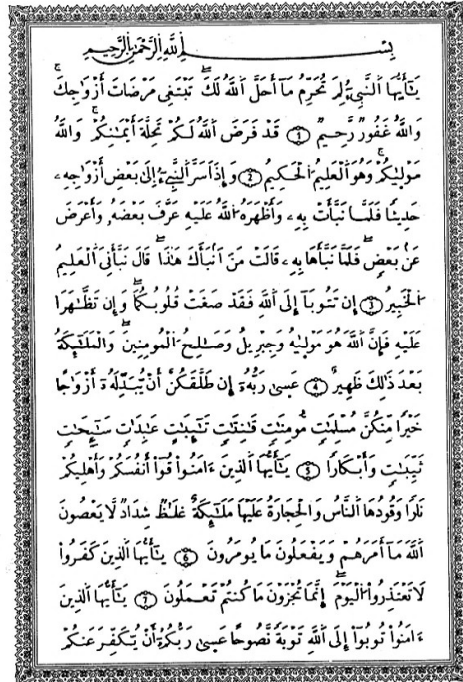 بِسْمِ اِللَّهِ اِلرَّحْمَٰنِ اِلرَّحِيمِ
يَٰٓأَيُّهَا اَ۬لنَّبِيٓءُ لِمَ تُحَرِّمُ مَآ أَحَلَّ اَ۬للَّهُ لَكَۖ تَبْتَغِي مَرْضَاتَ أَزْوَٰجِكَۚ
وَاللَّهُ غَفُورٌ رَّحِيمٌ ۝١ قَدْ فَرَضَ اَ۬للَّهُ لَكُمْ تَحِلَّةَ أَيْمَٰنِكُمْۚ وَاللَّهُ
مَوْلَيٰكُمْۖ وَهُوَ اَ۬لْعَلِيمُ اُ۬لْحَكِيمُ ۝٢ وَإِذَ اَسَرَّ اَ۬لنَّبِيٓءُ اِلَىٰ بَعْضِ أَزْوَٰجِهِۦ
حَدِيثًا فَلَمَّا نَبَّأَتْ بِهِۦ وَأَظْهَرَهُ اُ۬للَّهُ عَلَيْهِ عَرَّفَ بَعْضَهُۥ وَأَعْرَضَ
عَنۢ بَعْضٍۖ فَلَمَّا نَبَّأَهَا بِهِۦ قَالَتْ مَنَ اَنۢبَأَكَ هَٰذَاۖ قَالَ نَبَّأَنِيَ اَ۬لْعَلِيمُ
اُ۬لْخَبِيرُ ۝٣ إِن تَتُوبَآ إِلَى اَ۬للَّهِ فَقَدْ صَغَتْ قُلُوبُكُمَاۖ وَإِن تَظَّٰهَرَا
عَلَيْهِ فَإِنَّ اَ۬للَّهَ هُوَ مَوْلَيٰهُ وَجِبْرِيلُ وَصَٰلِحُ اُ۬لْمُومِنِينَۖ وَالْمَلَٰٓئِكَةُ
بَعْدَ ذَٰلِكَ ظَهِيرٌ ۝٤ عَسَىٰ رَبُّهُۥٓ إِن طَلَّقَكُنَّ أَنْ يُّبَدِّلَهُۥٓ أَزْوَٰجًا
خَيْرًا مِّنكُنَّ مُسْلِمَٰتٍ مُّومِنَٰتٍ قَٰنِتَٰتٍ تَٰٓئِبَٰتٍ عَٰبِدَٰتٍ سَٰٓئِحَٰتٍ
ثَيِّبَٰتٍ وَأَبْكَارًا ۝٥ يَٰٓأَيُّهَا اَ۬لذِينَ ءَامَنُوا قُوٓا أَنفُسَكُمْ وَأَهْلِيكُمْ
نَارًا وَقُودُهَا اَ۬لنَّاسُ وَالْحِجَارَةُ عَلَيْهَا مَلَٰٓئِكَةٌ غِلَٰظٌ شِدَادٌ لَّا يَعْصُونَ
اَ۬للَّهَ مَآ أَمَرَهُمْ وَيَفْعَلُونَ مَا يُومَرُونَ ۝٦ يَٰٓأَيُّهَا اَ۬لذِينَ كَفَرُوا
لَا تَعْتَذِرُوا اُ۬لْيَوْمَۖ إِنَّمَا تُجْزَوْنَ مَا كُنتُمْ تَعْمَلُونَ ۝٧ يَٰٓأَيُّهَا اَ۬لذِينَ
ءَامَنُوا تُوبُوٓا إِلَى اَ۬للَّهِ تَوْبَةً نَّصُوحًا عَسَىٰ رَبُّكُمُۥٓ أَنْ يُّكَفِّرَ عَنكُمْ